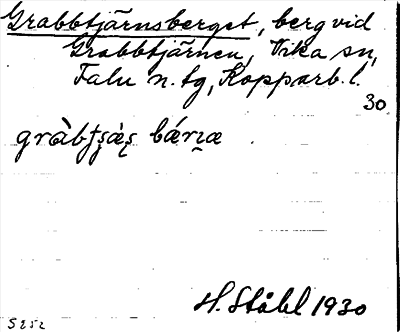 Grabbtjärnsberget, berg vid
Grabbtjärnen, Vika sn,
Falu n. tg, Kopparb. l.
30
H. Ståhl 1930
5252